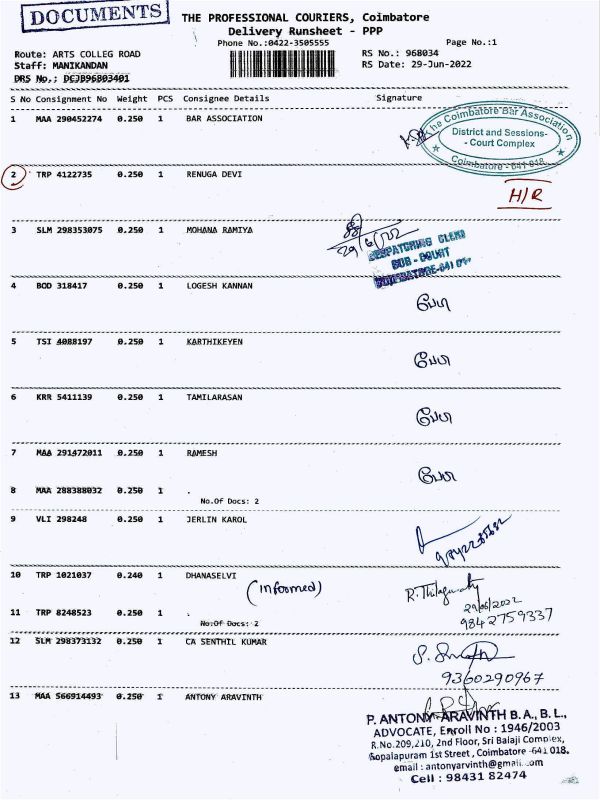 DOCUMENTS
THE PROFESSIONAL COURIERS, Coimbatore
Delivery Runsheet - PPP
Phone No.:0422-3505555
Page No.:1
Route: ARTS COLLEG ROAD
RS No.: 968034
Staff: MANIKANDAN
RS Date: 29-Jun-2022
DRS No,; DCJB96803401
S No Consignment No Weight PCS Consignee Details Signature
1 MAA 290452274 0.250 1 BAR ASSOCIATION
The Coimbatore Bar Association
District and Sessions-
- Court Complex
Coimbatore - 641 018.
2 TRP 4122735 0.250 1 RENUGA DEVI
H/R
3 SLM 298353075 0.250 1 MOHANA RAMIYA
29/6/22
DESPATCHING CLERK
SUB - COURT
COIMBATORE-641 0
4 BOD 318417 0.250 1 LOGESH KANNAN
5 TSI 4088197 0.250 1 KARTHIKEYEN
6 KRR 5411139 0.250 1 TAMILARASAN
7 MAA 291472011 0.250 1 RAMESH
8 MAA 288388032 0.250 1 .
No.Of Docs: 2
9 VLI 298248 0.250 1 JERLIN KAROL
10 TRP 1021037 0.240 1 DHANASELVI
(informed)
29/06/2022
11 TRP 8248523 0.250 1 .
9842759337
No.Of Docs: 2
12 SLM 298373132 0.250 1 CA SENTHIL KUMAR
9360290967
13 MAA 566914493 0.250 1 ANTONY ARAVINTH
P. ANTONY ARAVINTH B.A., B.L.,
ADVOCATE, Enroll No : 1946/2003
R.No.209,210, 2nd Floor, Sri Balaji Complex,
Gopalapuram 1st Street, Coimbatore -641 018.
email : antonyarvinth@gmail.com
Cell : 98431 82474